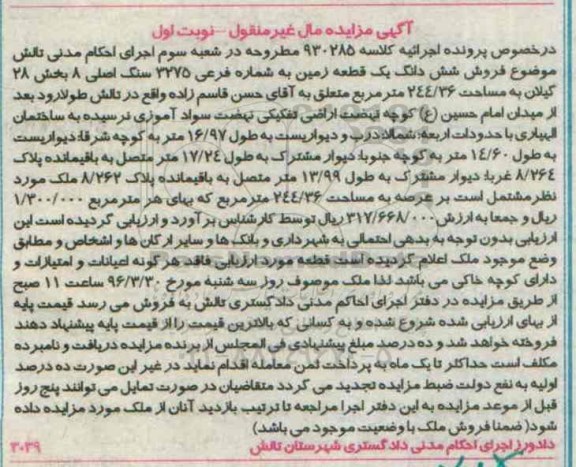 آگهی مزایده مال غیرمنقول - نوبت اول
درخصوص پرونده اجرائیه کلاسه ۹۳۰۲۸۵ مطروحه در شعبه سوم اجرای احکام مدنی تالش
موضوع فروش شش دانگ یک قطعه زمین به شماره فرعی ۳۲۷۵ سنگ اصلی ۸ بخش ۲۸
گیلان به مساحت ۲۴۴/۳۶ متر مربع متعلق به آقای حسن قاسم زاده واقع در تالش طولارود بعد
از میدان امام حسین (ع) کوچه نهضت اراضی تفکیکی نهضت سواد آموزی نرسیده به ساختمان
الهیاری با حدودات اربعه: شمالا: درب و دیواریست به طول ۱۶/۹۷ متر به کوچه شرقا: دیواریست
به طول ۱۴/۶۰ متر به کوچه جنوبا: دیوار مشترک به طول ۱۷/۲۴ متر متصل به باقیمانده پلاک
۸/۲۶۴ غربا: دیوار مشترک به طول ۱۳/۹۹ متر متصل به باقیمانده پلاک ۸/۲۶۲ ملک مورد
نظر مشتمل است بر عرصه به مساحت ۲۴۴/۳۶ مترمربع که بهای هر مترمربع ۱/۳۰۰/۰۰۰
ریال و جمعا به ارزش ۳۱۷/۶۶۸/۰۰۰ ریال توسط کارشناس بر آورد و ارزیابی گردیده است این
ارزیابی بدون توجه به بدهی احتمالی به شهرداری و بانک ها و سایر ارگان ها و اشخاص و مطابق
وضع موجود ملک اعلام گردیده است قطعه مورد ارزیابی فاقد هر گونه اعیانات و امتیازات و
دارای کوچه خاکی می باشد لذا ملک موصوف روز سه شنبه مورخ ۹۶/۳/۳۰ ساعت ۱۱ صبح
از طریق مزایده در دفتر اجرای احاکم مدنی دادگستری تالش به فروش می رسد قیمت پایه
از بهای ارزیابی شده شروع شده و به کسانی که بالاترین قیمت را از قیمت پایه پیشنهاد دهند
فروخته خواهد شد و ده درصد مبلغ پیشنهادی فی المجلس از برنده مزایده دریافت و نامبرده
مکلف است حداکثر تا یک ماه به پرداخت ثمن معامله اقدام نماید در غیر این صورت ده درصد
اولیه به نفع دولت ضبط مزایده تجدید می گردد متقاضیان در صورت تمایل می توانند پنج روز
قبل از موعد مزایده به این دفتر اجرا مراجعه تا ترتیب بازدید آنان از ملک مورد مزایده داده
شود( ضمنا فروش ملک با وضعیت موجود می باشد)
دادورز اجرای احکام مدنی دادگستری شهرستان تالش ۳۰۳۹